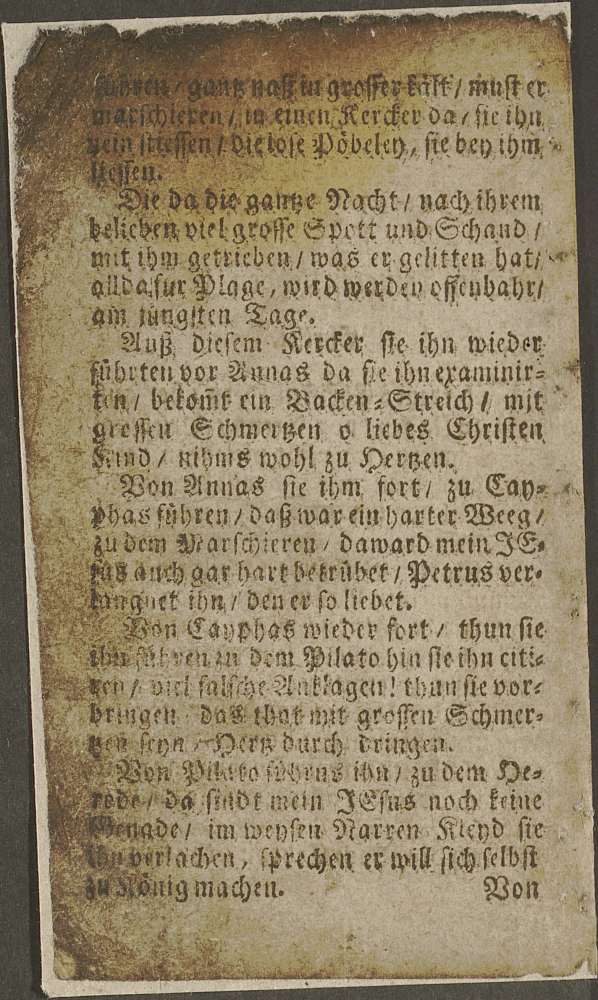 führen / gantz naß in grosser kält / must er
marschieren / in einen Kercker da / sie ihn
nein stiessen / die lose Pöbeley, sie bey ihm
liessen.
Die da die gantze Nacht / nach ihrem
belieben viel grosse Spott und Schand /
mit ihm getrieben / was er gelitten hat /
allda für Plage, wird werden offenbahr /
am jüngsten Tage.
Auß diesem Kercker sie ihn wieder
führten vor Annas da sie ihn examinir=
ten / bekom̃t ein Backen=Streich / mit
grossen Schmertzen o liebes Christen
Kind / nihms wohl zu Hertzen.
Von Annas sie ihm fort / zu Cay=
phas führen / daß war ein harter Weeg /
zu dem Marschieren / da ward mein JE=
sus auch gar hart betrübet / Petrus ver=
laugnet ihn / den er so liebet.
Von Cayphas wieder fort / thun sie
ihn führen zu dem Pilato hin sie ihn citi=
ren / viel falsche Anklagen! thun sie vor=
bringen das that mit grossen Schmer=
tzen seyn / Hertz durch dringen.
Von Pilato führns ihn / zu dem He=
rode / da findt mein JEsus noch keine
Genade / im weysen Narren Kleyd sie
ihn verlachen, sprechen er will sich selbst
zu König machen.
Von